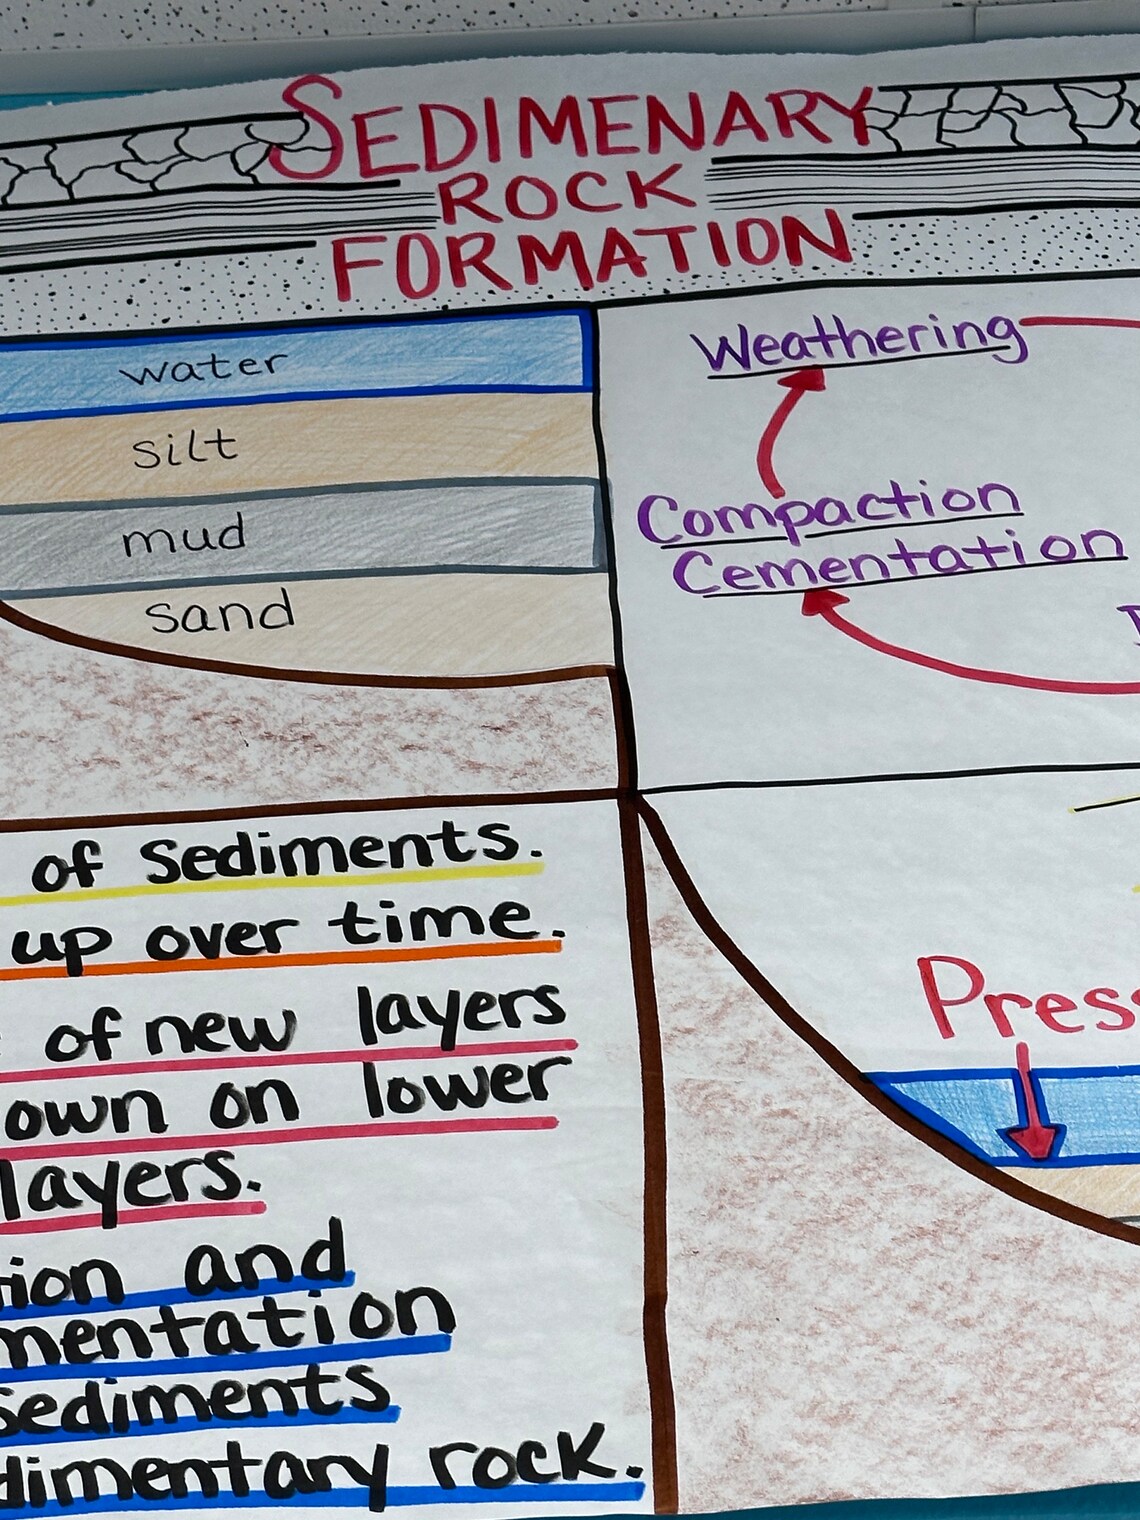 SEDIMENARY
ROCK
FORMATION
water
silt
mud
sand
Weathering
Compaction
Cementation
of Sediments.
up over time.
of new layers
own on lower
layers.
ion and
mentation
sediments
dimentary rock.
Press